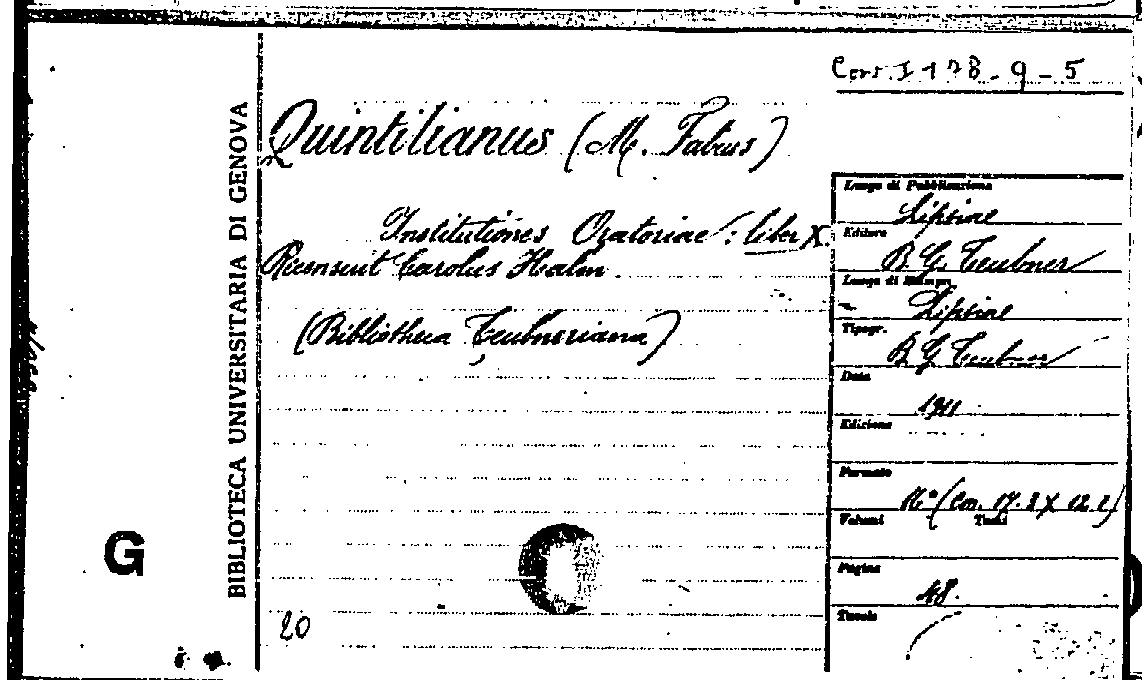 Cons. I 178 - 9 - 5
BIBLIOTECA UNIVERSITARIA DI GENOVA
G
Quintilianus (M. Fabius)
Institutiones Oratoriae : liber X.
Recensuit Carolus Halm.
(Bibliotheca Teubneriana)
20
Luogo di Pubblicazione
Lipsiae
Editore
B. G. Teubner
Luogo di Stampa
Lipsiae
Tipogr.
B. G. Teubner
Data
1911
Edizione
Formato
(Cm. 17.2 X 12.2)
Volumi Tomi
Pagine
48.
Tavole